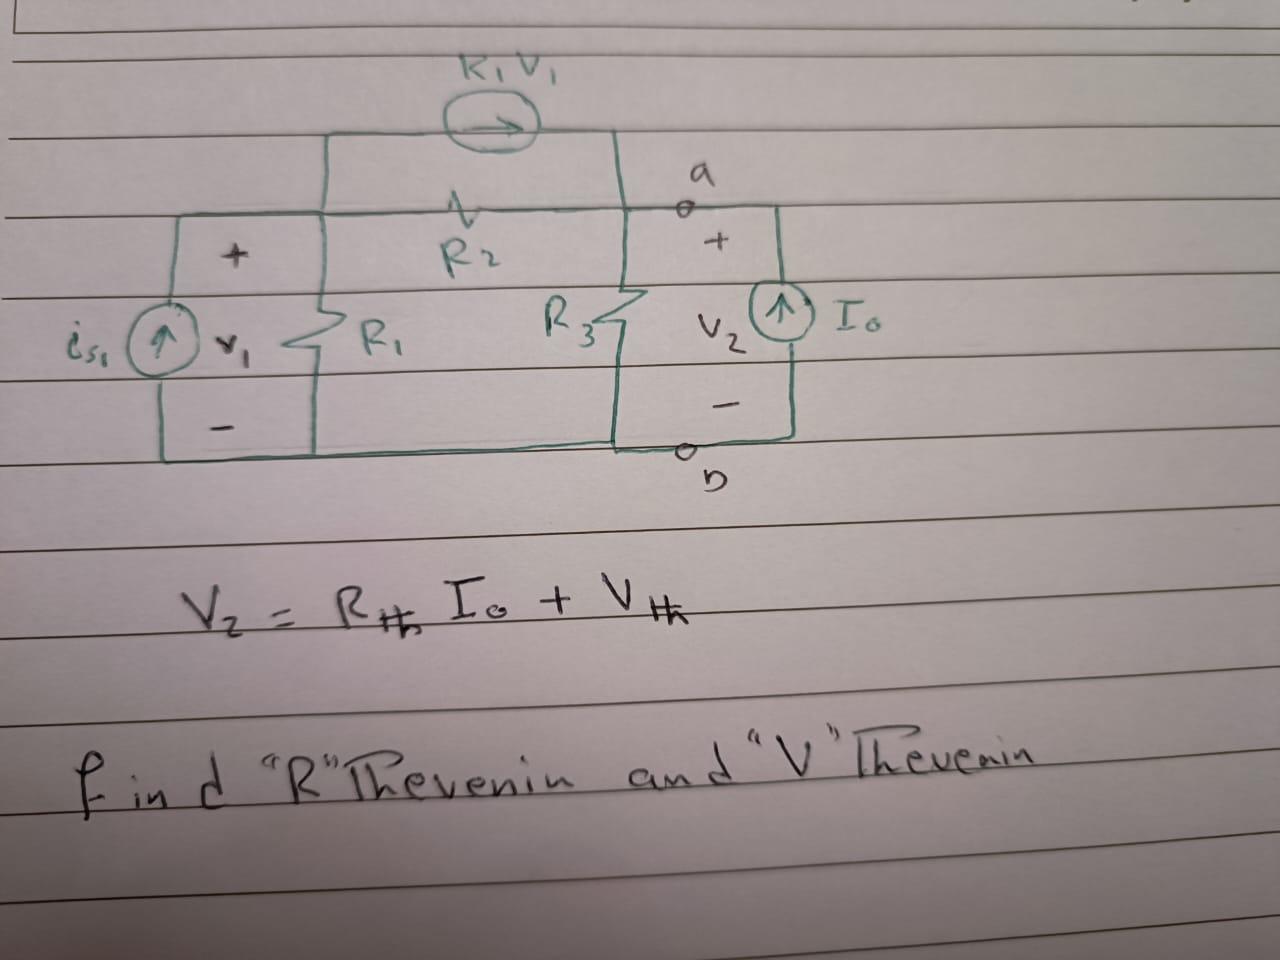 K₁ V₁
a
+ R₂ +
iₛ₁ v₁ R₁ R₃ V₂ I₀
- -
b
V₂ = R_th I₀ + V_th
find "R" Thevenin and "V" Thevenin